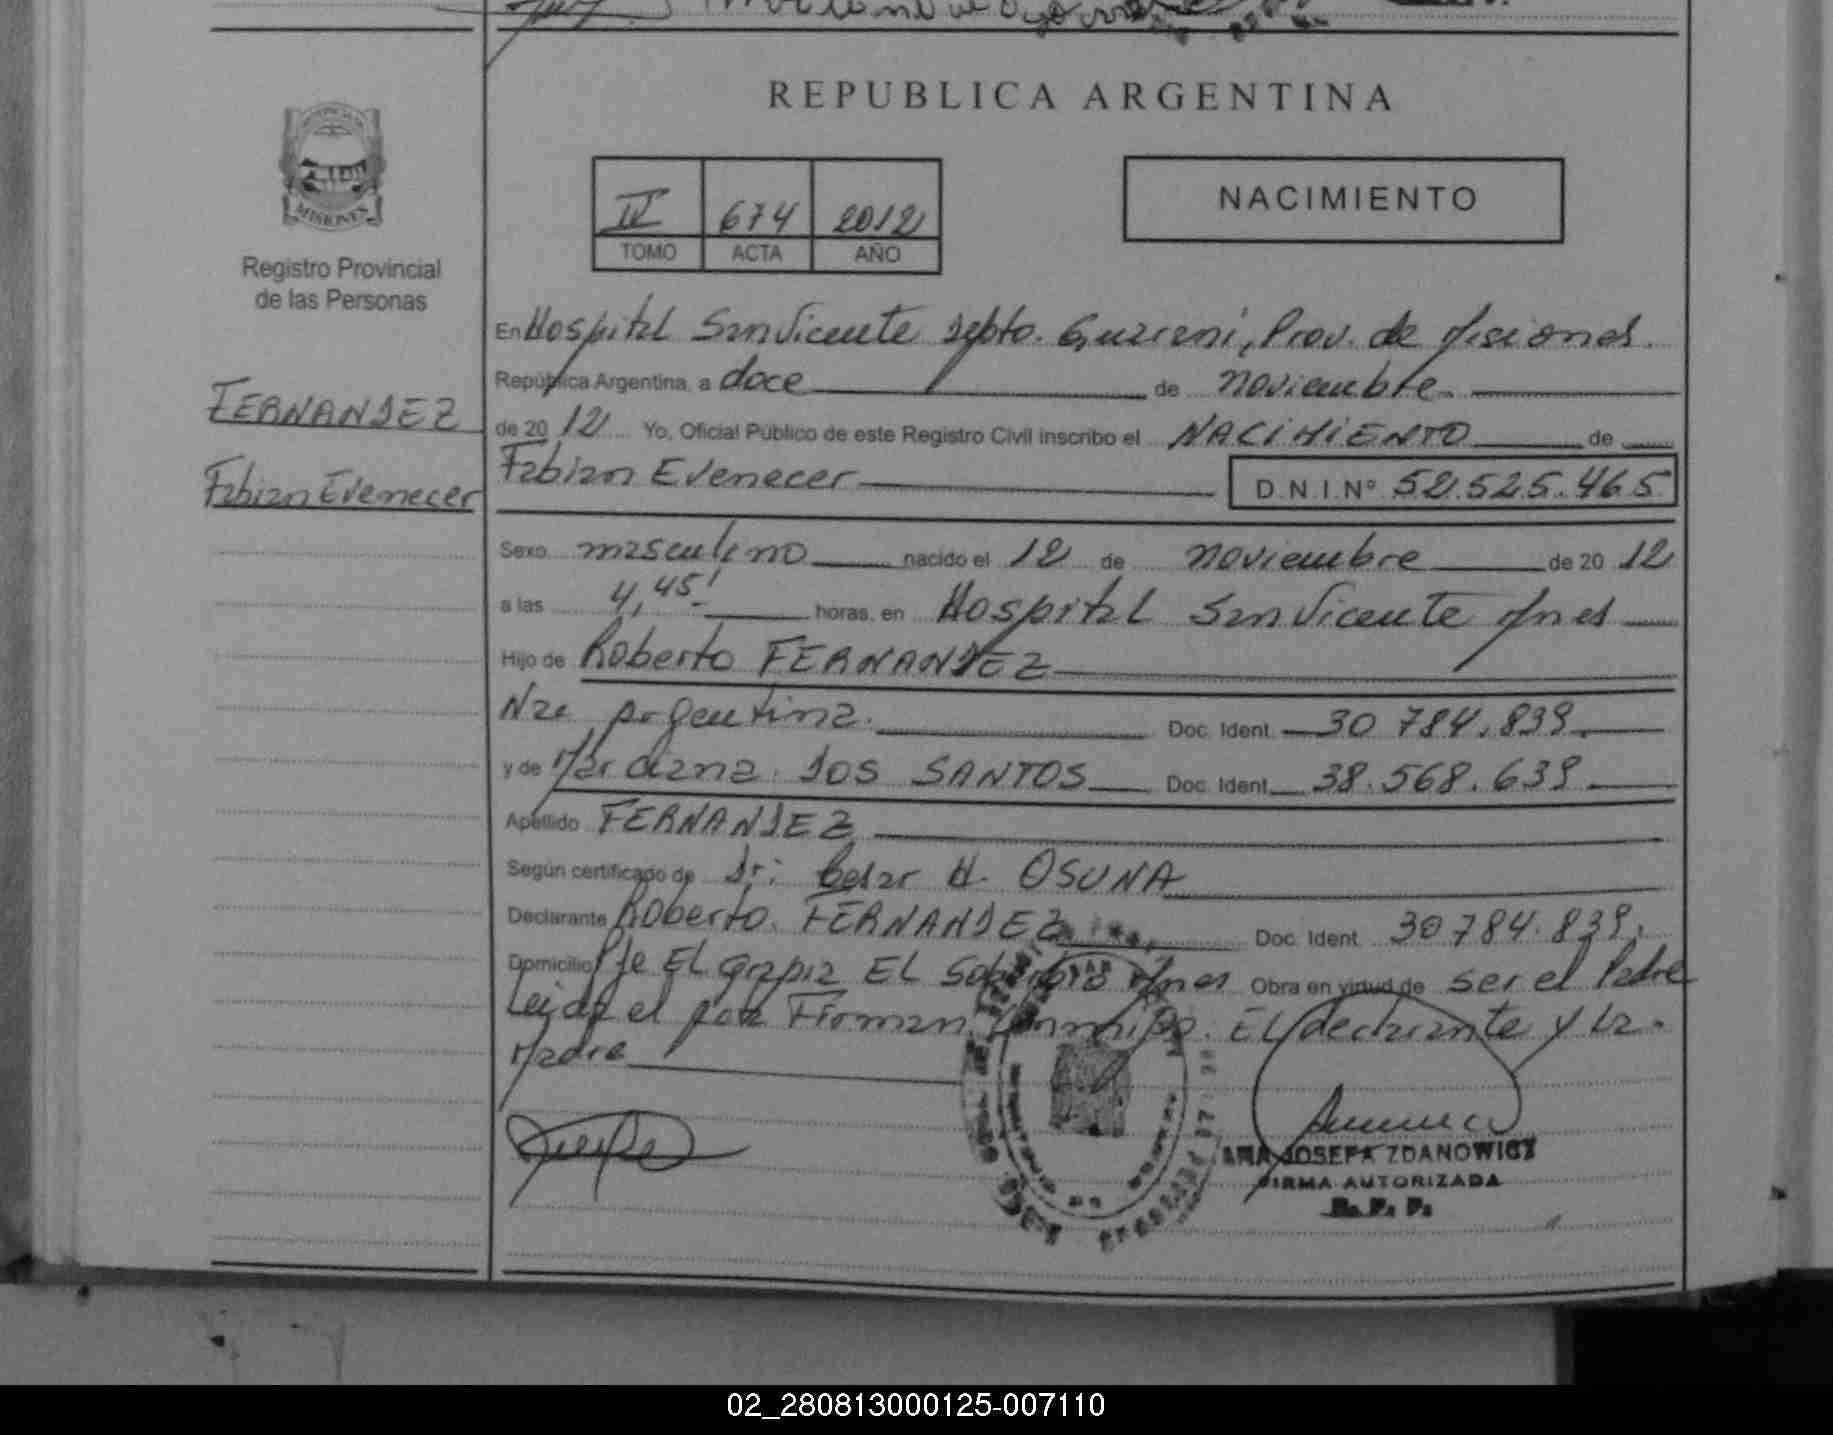 REPUBLICA ARGENTINA
MISIONES
Registro Provincial
de las Personas
IV 674 2012
TOMO ACTA AÑO
NACIMIENTO
En Hospital San Vicente Depto. Guarani, Prov. de Misiones.
República Argentina, a doce de noviembre
FERNANDEZ
de 20 12 Yo, Oficial Público de este Registro Civil inscribo el NACIMIENTO de
Fabian Evenecer
Fabian Evenecer D.N.I.Nº 52.525.465
Sexo masculino nacido el 12 de noviembre de 20 12
a las 4,45' horas, en Hospital San Vicente Mnes
Hijo de Roberto FERNANDEZ
Nac Argentina. Doc. Ident. 30 784.839.
y de Marciana DOS SANTOS Doc. Ident. 38.568.639.
Apellido FERNANDEZ
Según certificado de Dr: Cesar H. OSUNA
Declarante Roberto FERNANDEZ Doc. Ident. 30 784.839.
Domicilio Pje El Grapia El Soberbio Mnes Obra en virtud de ser el Padre
Leida el acta Firman Conmigo. El declarante y la
Madre
ANA JOSEFA ZDANOWICZ
FIRMA AUTORIZADA
R. P. P.
02_280813000125-007110